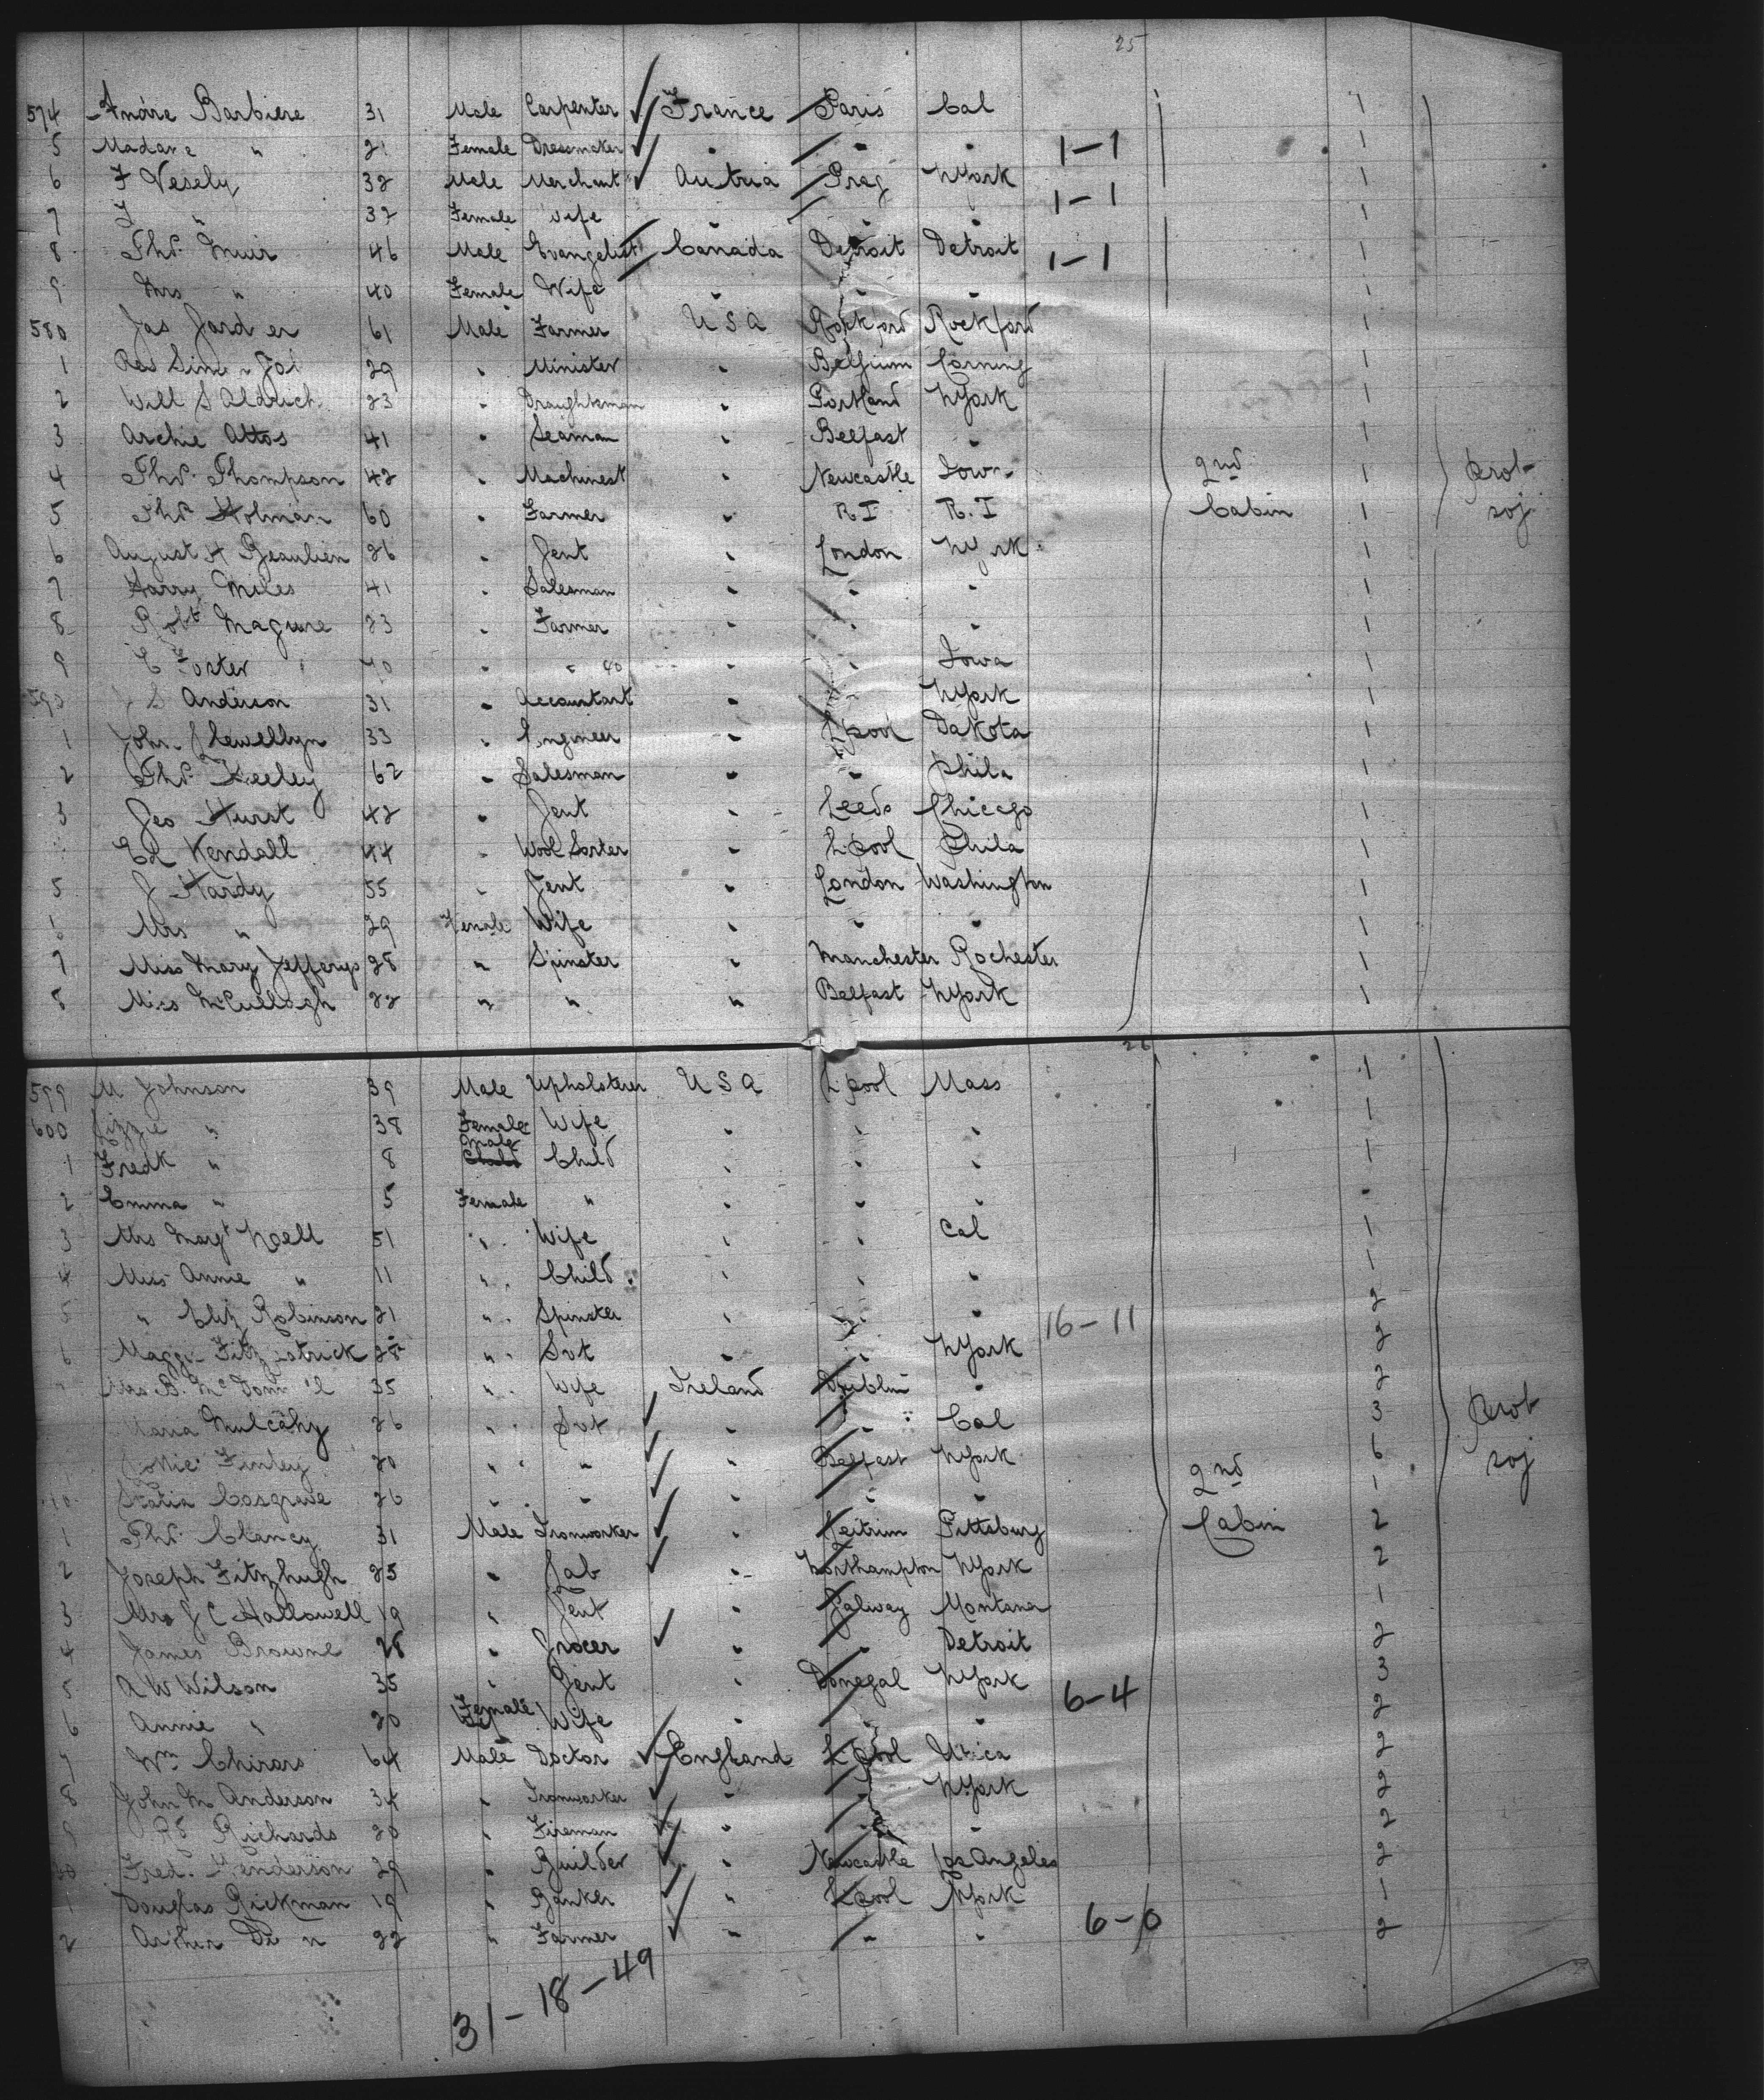 25
574 Andre Barbiere 31 Male Carpenter France Paris Cal 1
5 Madame " 21 Female Dressmaker " " " 1-1 1
6 F Vesely 32 Male Merchant Austria Prag NYork 1
7 F " 32 Female Wife " " " 1-1 1
8 Thos. Muir 46 Male Evangelist Canada Detroit Detroit 1-1 1
9 Mrs " 40 Female Wife " " " 1
580 Jas 61 Male Farmer U S A Rockford Rockford 1
1 29 " Minister " Belgium Corning 1
2 Will S Aldrich 23 " Draughtsman " Portland NYork 1
3 Archie Attos 41 " Seaman " Belfast " 1
4 Thos. Thompson 42 " Machinest " Newcastle Iowa 2nd 1 prot-
5 Thos Holman 60 " Farmer " R I R. I Cabin 1 soj
6 August H Beaulien 26 " Gent " London NYork 1
7 Harry Miles 41 " Salesman " " " 1
8 Robt Maguire 23 " Farmer " " " 1
9 C Foster 40 " " 40 " " Iowa 1
590 J S Anderson 31 " Accountant " " NYork 1
1 John Llewellyn 33 " Engineer " Lpool Dakota 1
2 Thos. Keeley 62 " Salesman " " Phila 1
3 Geo Hurst 42 " Gent " Leeds Chicago 1
Kendall 44 " Wool Sorter " Lpool Phila 1
5 J Hardy 55 " Gent " London Washington 1
6 Mrs " 29 Female Wife " " " 1
7 Miss Mary Jefferys 28 " Spinster " Manchester Rochester 1
8 Miss McCullagh 22 " " " Belfast NYork 1
26
599 M Johnson 39 Male Upholsterer U S A Lpool Mass 1
600 Lizzie " 38 Female Wife " " " 1
1 Fredk " 8 Male Child " " " 1
2 Emma " 5 Female " " " "
3 Mrs Margt Noell 51 " Wife " " Cal 1
4 Miss Annie " 11 " Child " " " 1
5 " Eliz Robinson 21 " Spinster " " " 16-11 2
6 Maggie Fitzpatrick 28 " Svt " " NYork 2
Mrs B. 35 " Wife Ireland Dublin " 2
Maria Mulcahy 26 " Svt " " Cal 3 prot
Finley 20 " " " Belfast NYork 2nd 6 soj
10 Statia Cosgrave 26 " " " " " 1
1 Thos. Clancy 31 Male Ironworker " Leitrim Pittsburg Cabin 2
2 Joseph Fitzhugh 25 " Lab " Northampton NYork 2
3 Mrs J C Hallowell 19 " Gent " Galway Montana 1
4 James Browne 28 " Grocer " " Detroit 2
5 A W Wilson 35 " Gent " Donegal NYork 6-4 3
6 Annie " 20 Female Wife " " " 2
7 Wm Chirars 64 Male Doctor England Lpool Utica 2
8 John M Anderson 34 " Ironworker " " NYork 2
9 Richards 20 " Fireman " " " 2
20 Fred. Henderson 29 " Builder " Newcastle Los Angeles 2
1 Douglas Rickman 19 " Banker " Lpool NYork 1
2 Arthur 22 " Farmer " " " 6-0 2
31-18-49